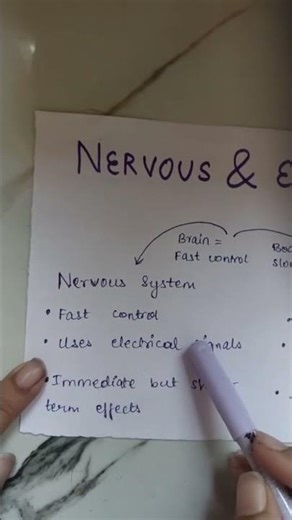 NERVOUS & E
Brain =
Fast control
Nervous System
• Fast control
• Uses electrical signals
• Immediate but
term effects